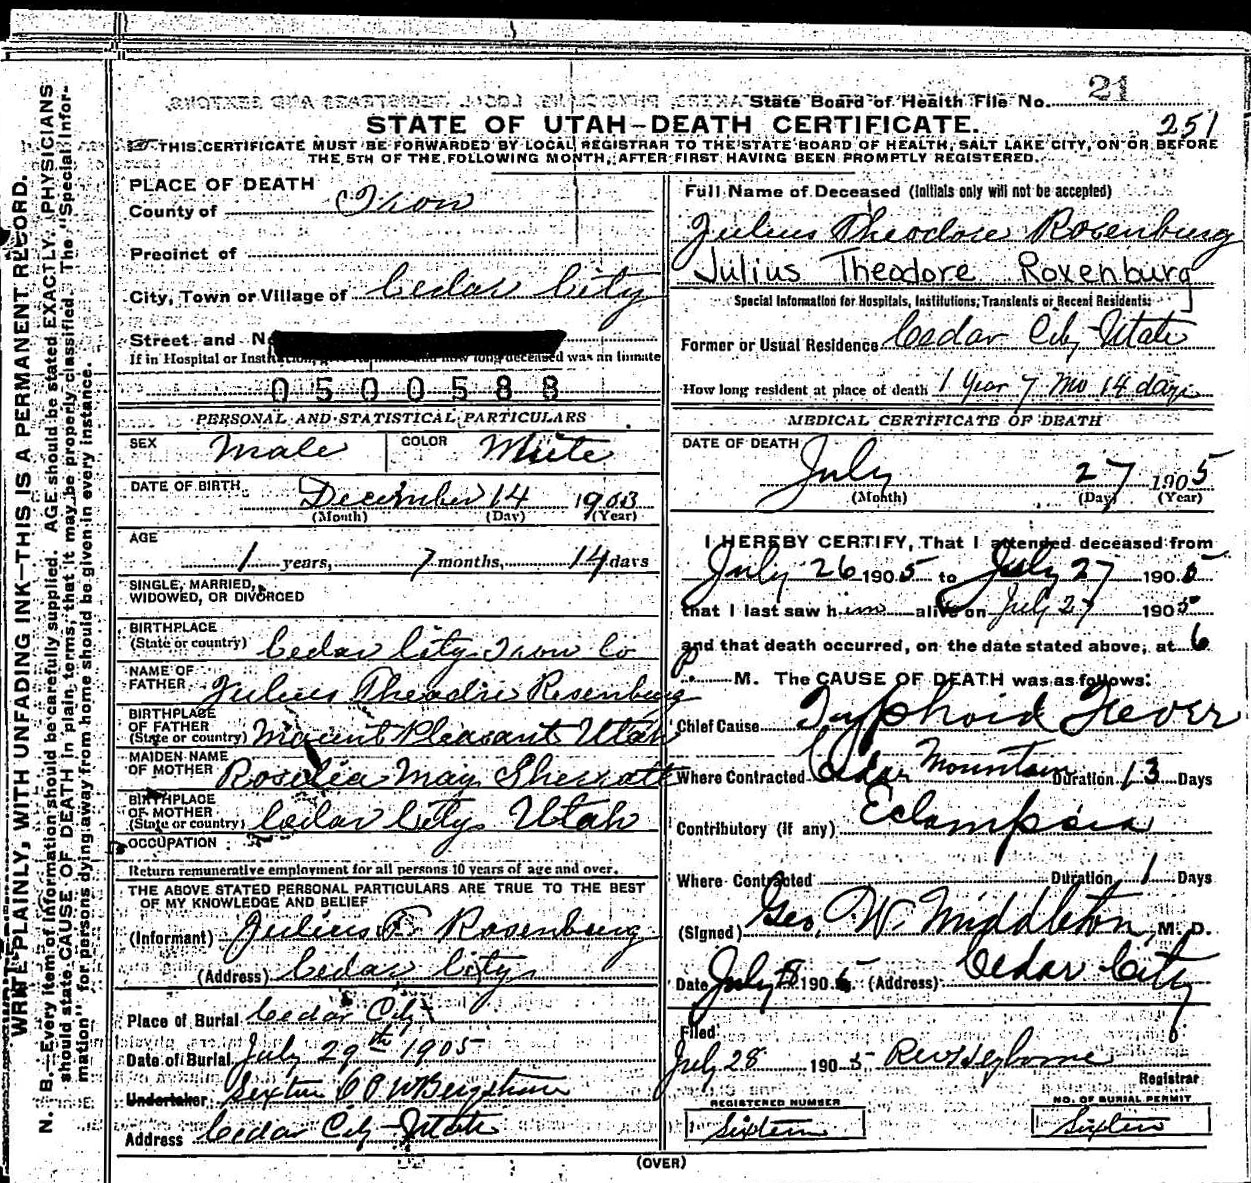 State Board of Health File No. 21
STATE OF UTAH–DEATH CERTIFICATE.
251
THIS CERTIFICATE MUST BE FORWARDED BY LOCAL REGISTRAR TO THE STATE BOARD OF HEALTH, SALT LAKE CITY, ON OR BEFORE
THE 5TH OF THE FOLLOWING MONTH, AFTER FIRST HAVING BEEN PROMPTLY REGISTERED.
WRITE PLAINLY, WITH UNFADING INK—THIS IS A PERMANENT RECORD.
N. B.—Every item of information should be carefully supplied. AGE should be stated EXACTLY. PHYSICIANS
should state CAUSE OF DEATH in plain terms, that it may be properly classified. The "Special Infor-
mation" for persons dying away from home should be given in every instance.
PLACE OF DEATH
County of Iron
Precinct of
City, Town or Village of Cedar City
Street and N
If in Hospital or
long deceased was an inmate
0500588
PERSONAL AND STATISTICAL PARTICULARS
SEX Male COLOR White
DATE OF BIRTH December 14 1903
(Month) (Day) (Year)
AGE
1 years, 7 months, 14 days
SINGLE, MARRIED,
WIDOWED, OR DIVORCED
BIRTHPLACE
(State or country) Cedar City Iron Co
NAME OF
FATHER Julius Theodore Rosenburg
BIRTHPLACE
OF FATHER
(State or country) Mount Pleasant Utah
MAIDEN NAME
OF MOTHER Rosilia May Sherratt
BIRTHPLACE
OF MOTHER
(State or country) Cedar City Utah
OCCUPATION
Return remunerative employment for all persons 10 years of age and over.
THE ABOVE STATED PERSONAL PARTICULARS ARE TRUE TO THE BEST
OF MY KNOWLEDGE AND BELIEF
(Informant) Julius T. Rosenburg
(Address) Cedar City
Place of Burial Cedar City
Date of Burial July 29th 1905
Undertaker Sexton
Address Cedar City Utah
Full Name of Deceased (Initials only will not be accepted)
Julius Theodore Rosenburg
Julius Theodore Roxenburg
Special Information for Hospitals, Institutions, Transients or Recent Residents:
Former or Usual Residence Cedar City Utah
How long resident at place of death 1 Year 7 Mo 14 days
MEDICAL CERTIFICATE OF DEATH
DATE OF DEATH
July 27 1905
(Month) (Day) (Year)
I HEREBY CERTIFY, That I attended deceased from
July 26 1905 to July 27 1905
that I last saw him alive on July 27 1905
and that death occurred, on the date stated above, at 6
P. M. The CAUSE OF DEATH was as follows:
Chief Cause Typhoid Fever
Where Contracted Cedar Mountain Duration 13 Days
Contributory (if any) Eclampsia
Where Contracted Duration 1 Days
(Signed) Geo. W. Middleton, M. D.
Date July 190 (Address) Cedar City
Filed
July 28 1905
Registrar
REGISTERED NUMBER
Sixteen
NO. OF BURIAL PERMIT
Sixteen
(OVER)